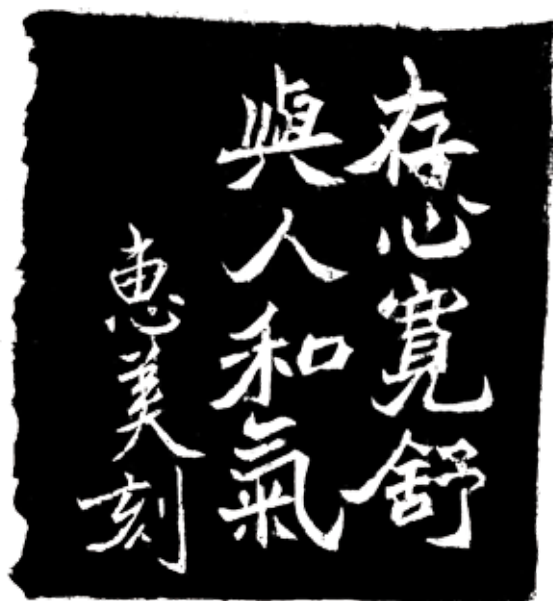 存心寬舒
與人和氣
惠美刻